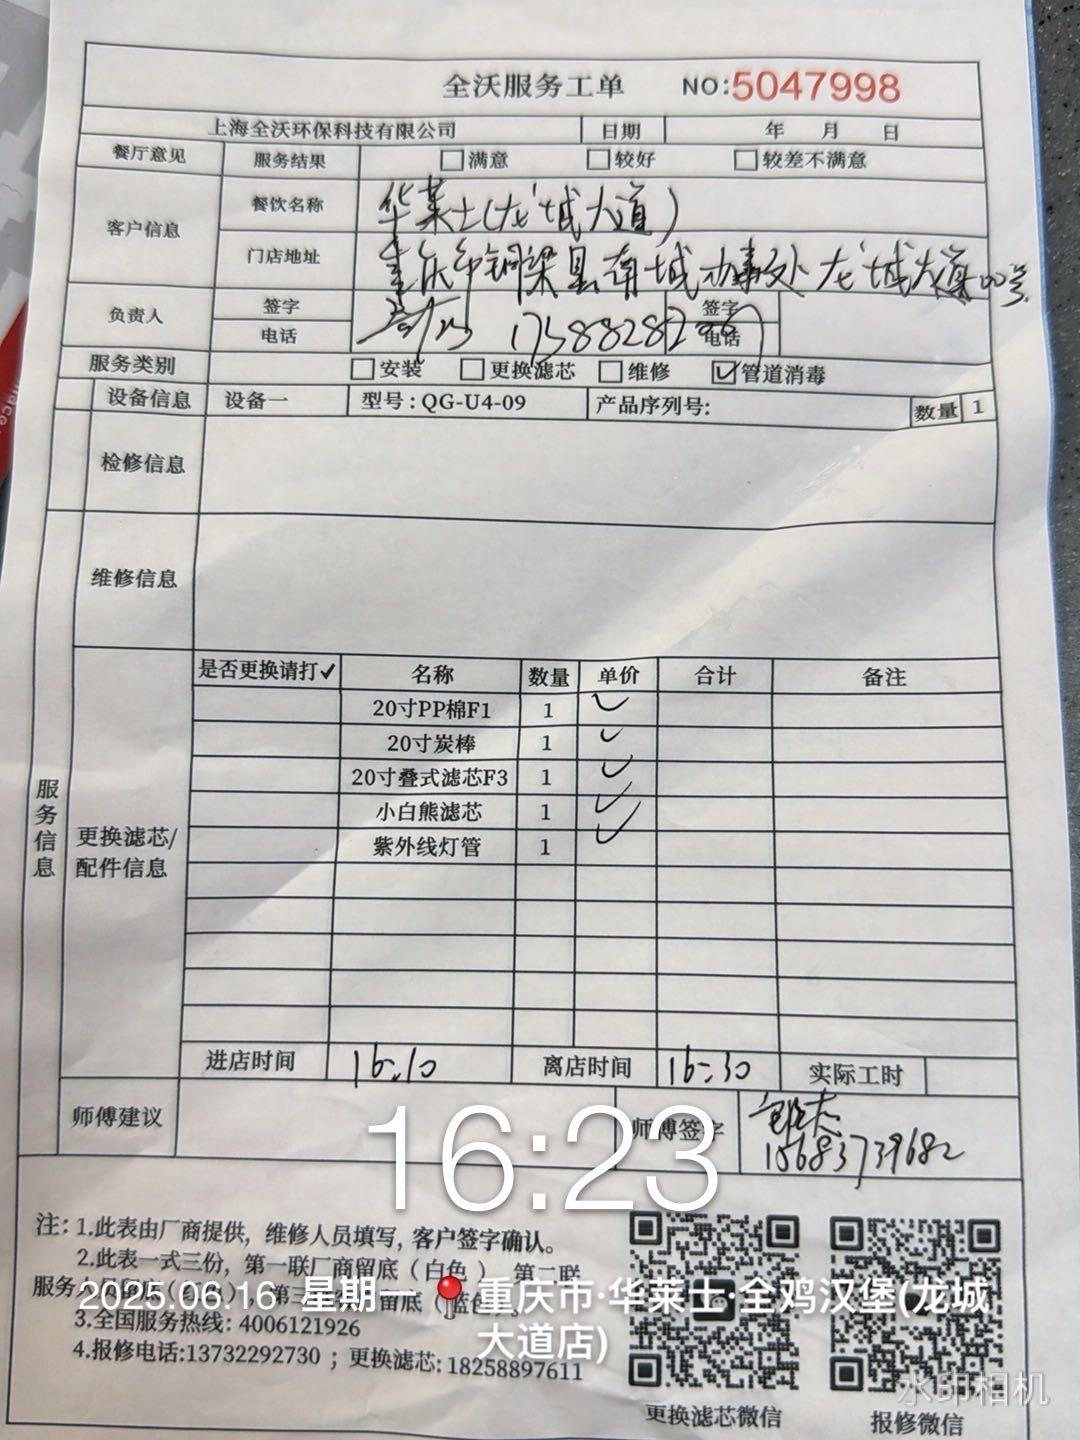 全沃服务工单 NO:5047998
上海全沃环保科技有限公司 日期 年 月 日
餐厅意见 服务结果 □满意 □较好 □较差不满意
客户信息 餐饮名称 华莱士(龙城大道)
门店地址 重庆市铜梁县南城办事处龙城大道
负责人 签字 签字
电话 电话
服务类别 □安装 □更换滤芯 □维修 ☑管道消毒
设备信息 设备一 型号:QG-U4-09 产品序列号: 数量 1
检修信息
维修信息
服务信息
更换滤芯/配件信息
是否更换请打✓ 名称 数量 单价 合计 备注
20寸PP棉F1 1 ✓
20寸炭棒 1 ✓
20寸叠式滤芯F3 1 ✓
小白熊滤芯 1 ✓
紫外线灯管 1 ✓
进店时间 16:10 离店时间 16:30 实际工时
师傅建议 师傅签字
15683739682
16:23
注: 1.此表由厂商提供，维修人员填写, 客户签字确认。
2.此表一式三份，第一联厂商留底（白色），第二联
服务 第三 留底（蓝色）。
2025.06.16 星期一 重庆市·华莱士·全鸡汉堡(龙城
大道店)
3.全国服务热线: 4006121926
4.报修电话:13732292730 ；更换滤芯: 18258897611
更换滤芯微信 报修微信
水印相机